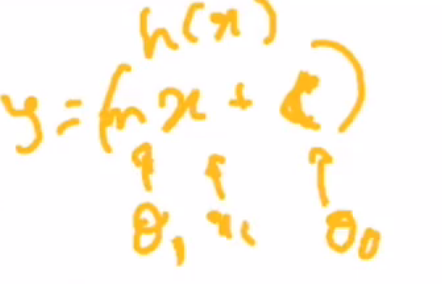 h(x)
y = (mx + c)
θ₁ xᵢ θ₀